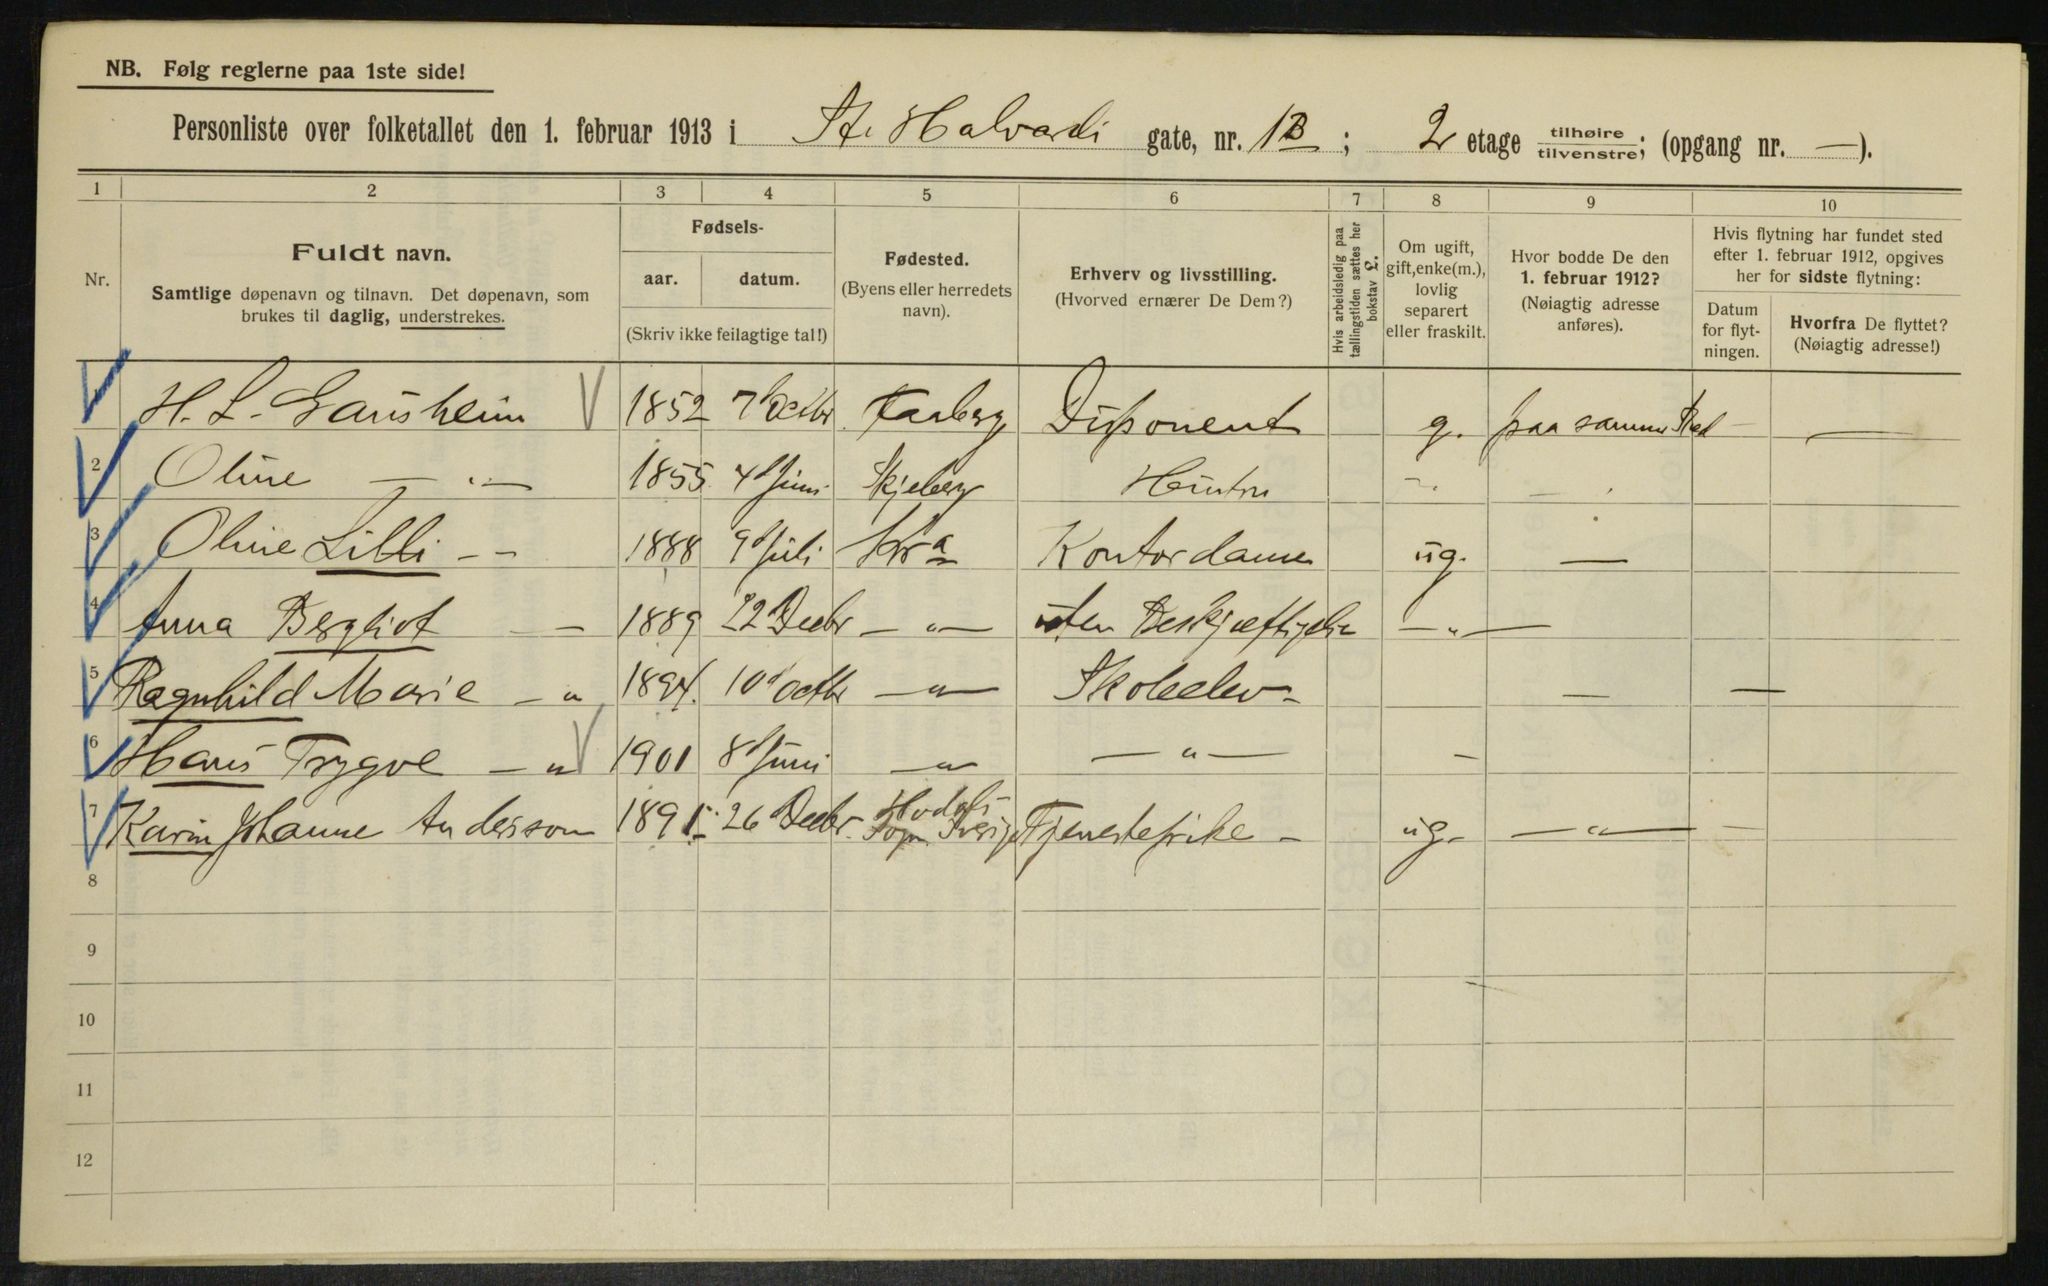 NB. Følg reglerne paa 1ste side!
Personliste over folketallet den 1. februar 1913 i St. Halvards gate, nr. 1B; 2 etage tilhøire/tilvenstre; (opgang nr. —).
1 2 3 4 5 6 7 8 9 10
Nr.
Fuldt navn.
Samtlige døpenavn og tilnavn. Det døpenavn, som
brukes til daglig, understrekes.
Fødsels-
aar. datum.
(Skriv ikke feilagtige tal!)
Fødested.
(Byens eller herredets
navn).
Erhverv og livsstilling.
(Hvorved ernærer De Dem?)
Hvis arbeidsledig paa
tællingstiden sættes her
bokstav L.
Om ugift,
gift, enke(m.),
lovlig
separert
eller fraskilt.
Hvor bodde De den
1. februar 1912?
(Nøiagtig adresse
anføres).
Hvis flytning har fundet sted
efter 1. februar 1912, opgives
her for sidste flytning:
Datum
for flyt-
ningen.
Hvorfra De flyttet?
(Nøiagtig adresse!)
1 H. L. Gausheim 1852 7 Octbr Disponent g. paa samme Sted — —
2 Oline — " — 1855 4d Juni Skjeberg Hustru — " —
3 Oline Lilli — — 1888 9d Juli Kra Kontordame ug. —
4 Anna Bergliot — — 1889 22 Decbr — " — uten Beskjæftigelse — " —
5 Ragnhild Marie — " 1894. 10d Octbr — " — Skoleelev — — —
6 Hans Trygve — " 1901 8d Juni — " — " — —
7 Karin Johanne Andersson 1891 26 Decbr. Sogn Sverige Tjenestepike — ug. — " — —
8
9
10
11
12